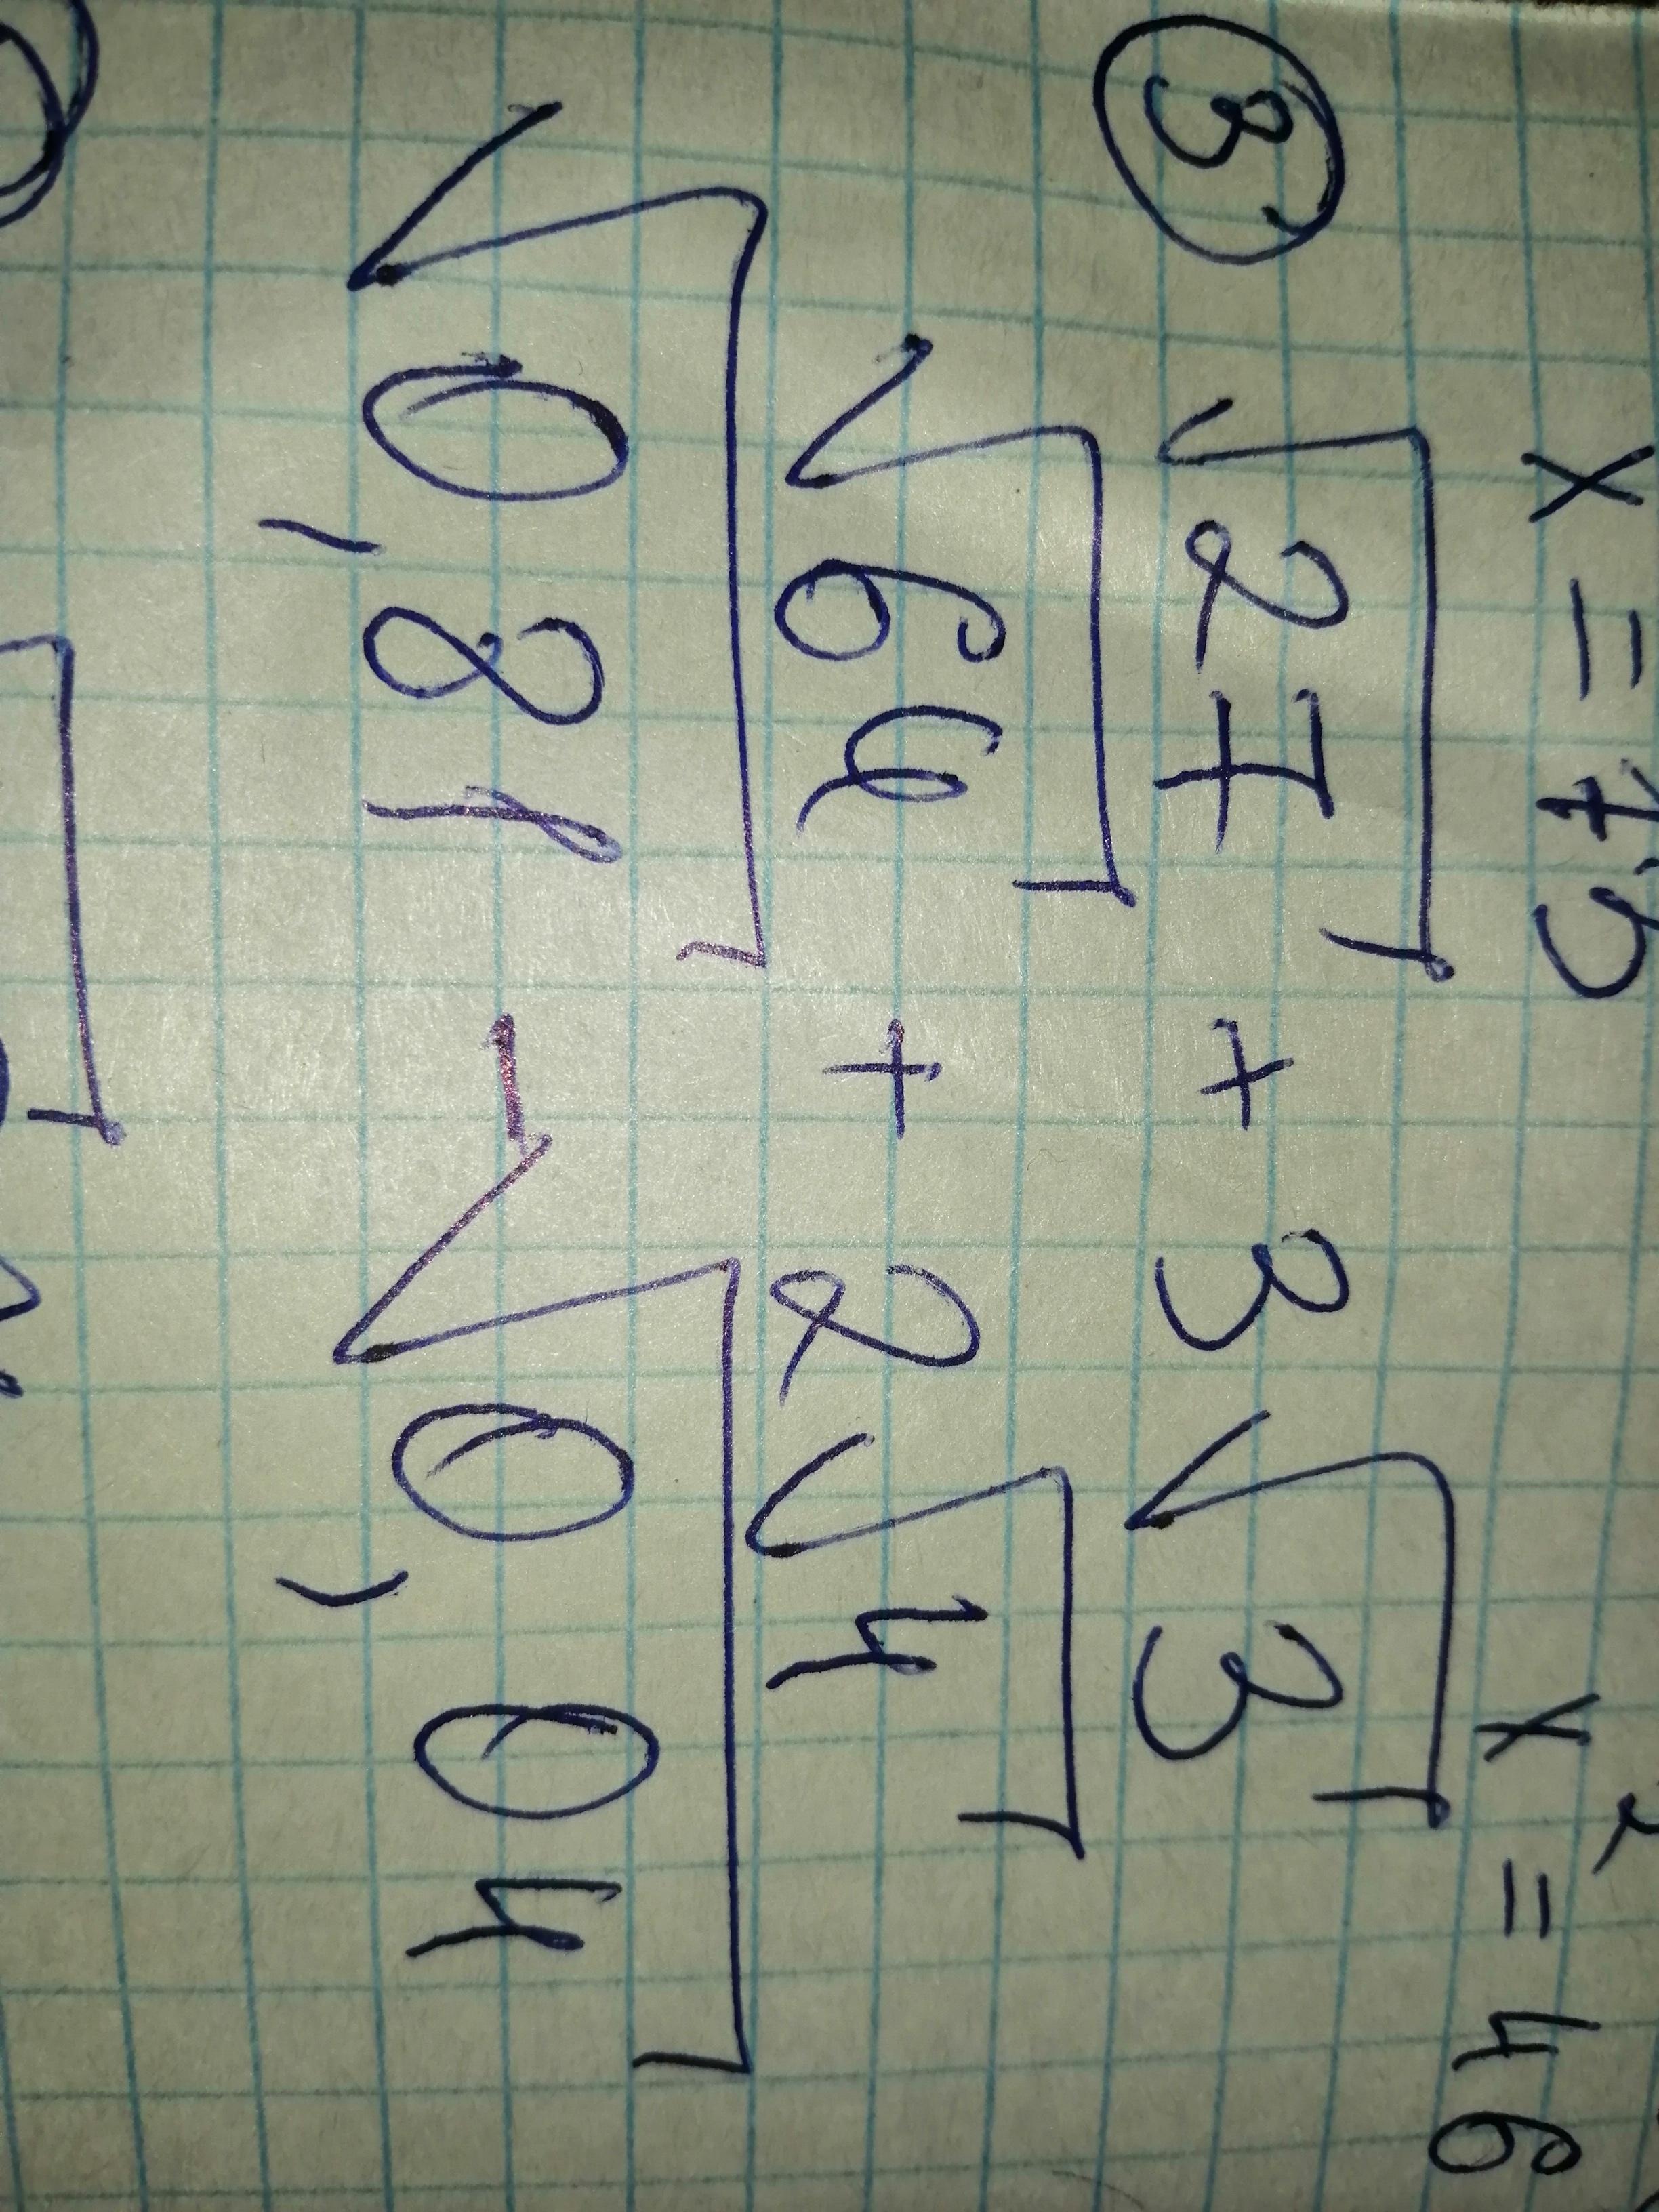 x = 7,5 x² = 46
③ √27 + 3√3
√64 + 2√4
√0,81 - √0,04